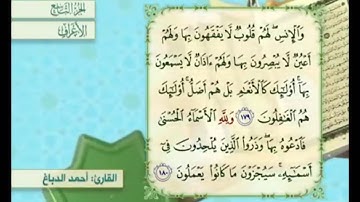 الجزء التاسع
الأعراف
وَٱلْإِنسِ ۖ لَهُمْ قُلُوبٌ لَّا يَفْقَهُونَ بِهَا وَلَهُمْ
أَعْيُنٌ لَّا يُبْصِرُونَ بِهَا وَلَهُمْ ءَاذَانٌ لَّا يَسْمَعُونَ
بِهَآ ۚ أُو۟لَٰٓئِكَ كَٱلْأَنْعَٰمِ بَلْ هُمْ أَضَلُّ ۚ أُو۟لَٰٓئِكَ
هُمُ ٱلْغَٰفِلُونَ ١٧٩ وَلِلَّهِ ٱلْأَسْمَآءُ ٱلْحُسْنَىٰ
فَٱدْعُوهُ بِهَا ۖ وَذَرُوا۟ ٱلَّذِينَ يُلْحِدُونَ فِىٓ
أَسْمَٰٓئِهِۦ ۚ سَيُجْزَوْنَ مَا كَانُوا۟ يَعْمَلُونَ ١٨٠
القارئ: أحمد الدباغ